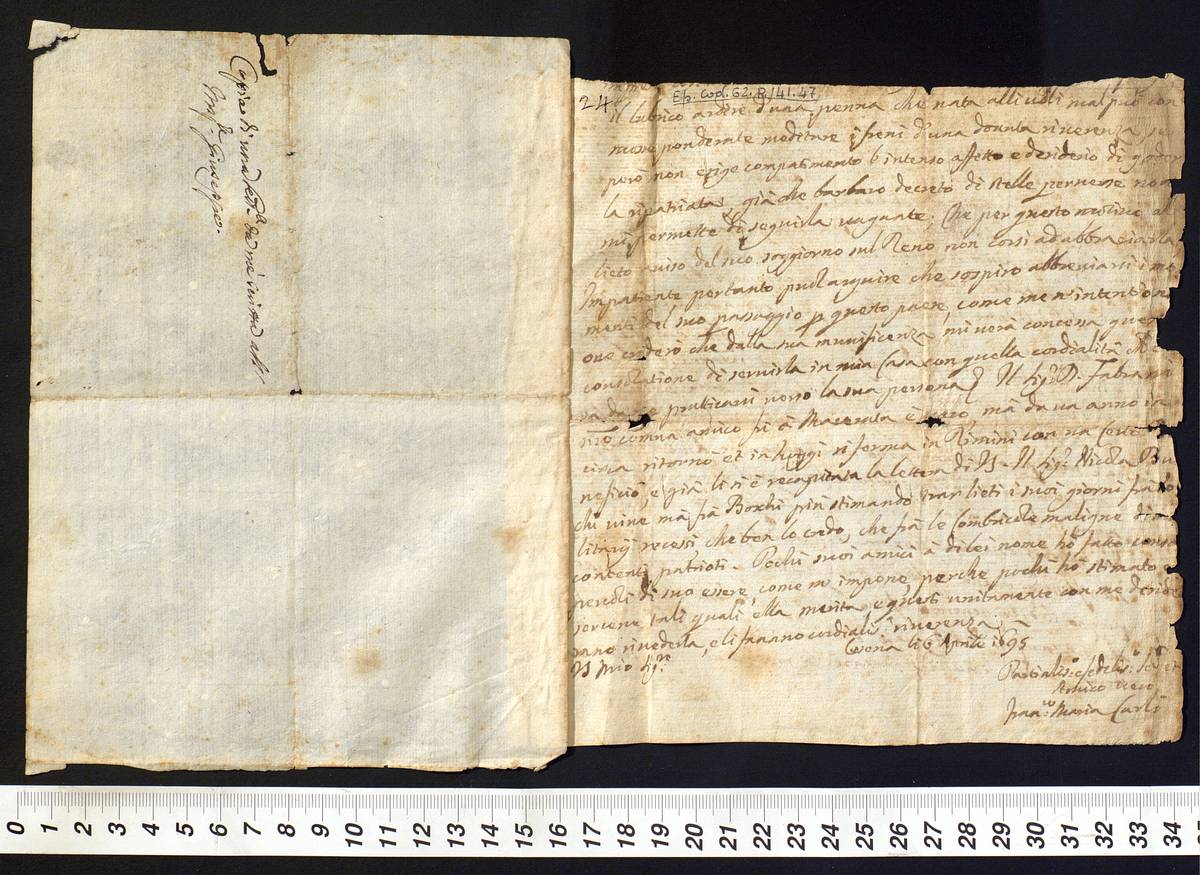 Copia di una da me scritta al
Giuseppe.
24
Ep. Cod. 62. P. 141. 47
il lubrico ardire d'una penna che nata alli mal può con
ponderate meditare i freni d'una douuta riuerenza, se
però non esige compatimento l'intenso affetto e desiderio di goder
la ripatriata, già che barbaro decreto di stelle peruerse non
mi permesse di seguirla uagante. Che per questo motiuo al
lieto auiso del suo soggiorno sul Reno non corsi ad abbracciarla
Impatiente pertanto può arguire che sospiro abbreuiarsi i mo
menti del suo passaggio p questo paese, come me n'intentiona
oue che dalla sua munificenza mi uerà concessa quella
consolatione di seruirla in mia Casa con quella cordialità ch
praticarsi uerso la sua persona Il Sigr D. Fabra
amico fù à Macerata mà da un anno in
circa ritornò et in hoggi si ferma in Rimini con un
neficio, e già li si è recapitata la lettera di VS. Il Sigr Nicola Bu
chi uiue mà frà Boschi più stimando trar lieti i suoi giorni frà so
litarij recessi che ben lo credo, che frà le Combricole maligne di
contenti patrioti. Pochi suoi amici à di lei nome hò fatto consa
peuoli di suo essere come m'impone perche pochi hò stimato
serne tali quali ella merita, e questi unitamente con me deside
rano riuederla, e li fanno cordialis.a riuerenza
li 6 Aprile 1695
VS Mio Sigre
Partialis.o e fedelis.o
Amico uero
Fran.co Maria Carli
0 1 2 3 4 5 6 7 8 9 10 11 12 13 14 15 16 17 18 19 20 21 22 23 24 25 26 27 28 29 30 31 32 33 34